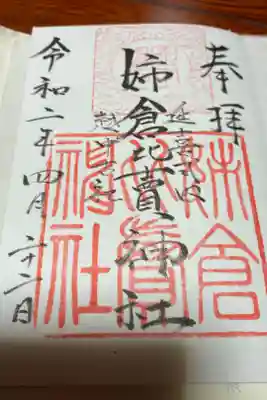 奉拝
延喜式
越中
姉倉比賣神社
令和二年四月二十二日
姉倉
比賣
神社